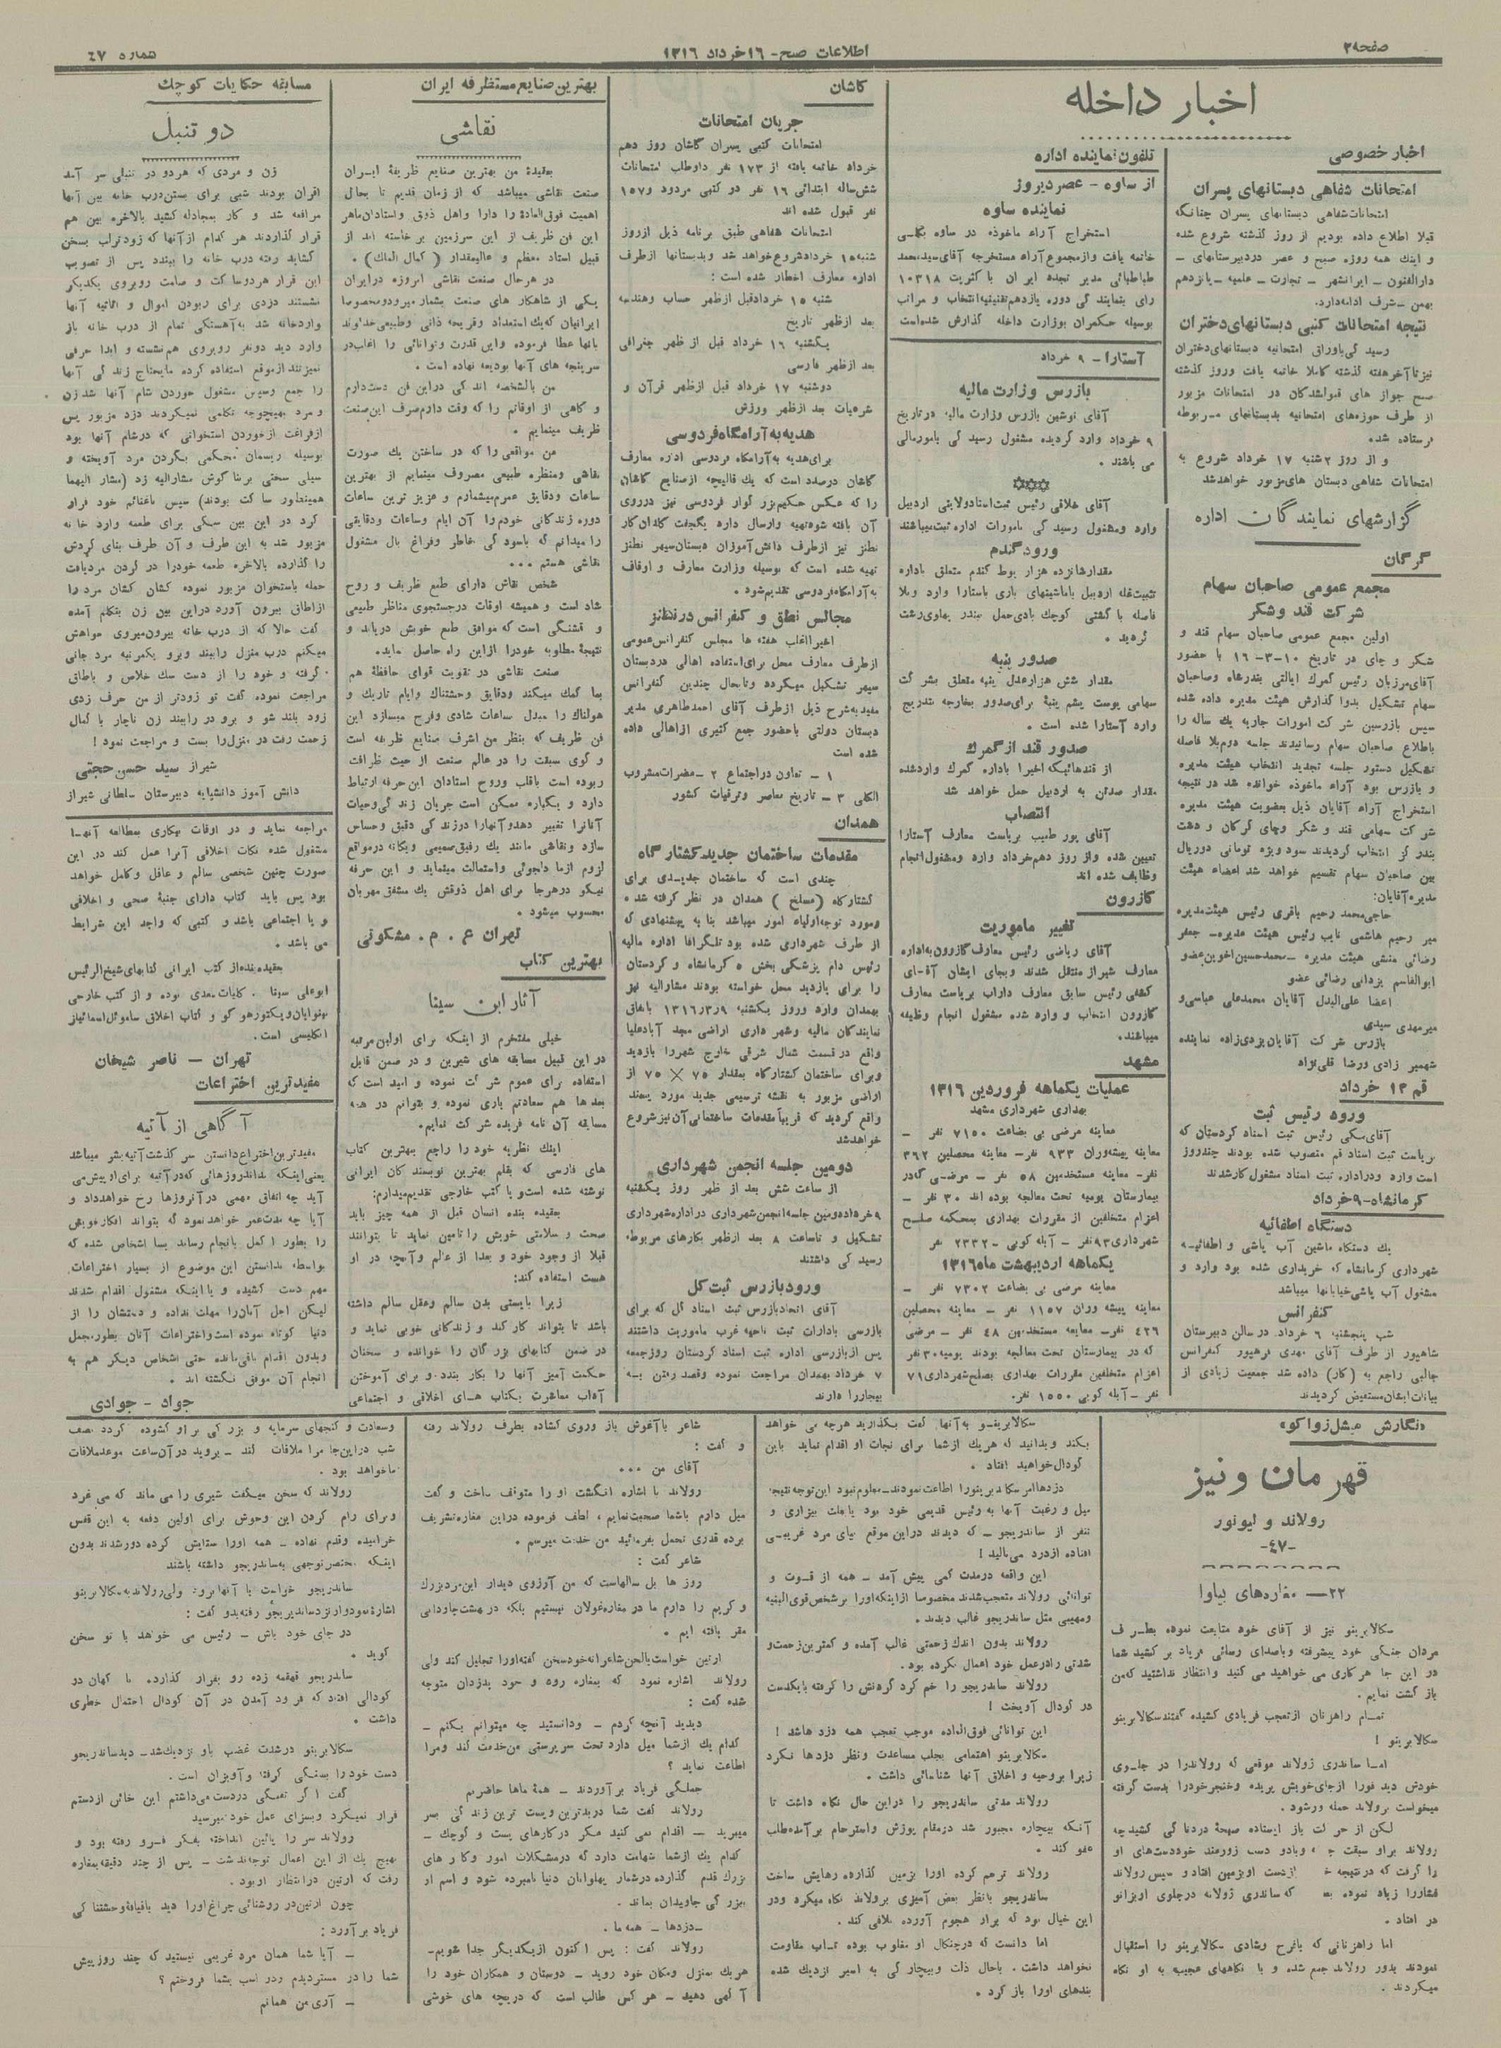 صفحه ۲
اطلاعات صبح - ۱۶ خرداد ۱۳۱۶
شماره ٤٧
اخبار داخله
اخبار خصوصی
امتحانات شفاهی دبستانهای پسران
امتحانات شفاهی دبستانهای پسران چنانکه
قبلا اطلاع داده بودیم از روز گذشته شروع شده
و اینك همه روزه صبح و عصر در دبیرستانهای -
دارالفنون - ایرانشهر - تجارت - علمیه - پانزدهم
بهمن - شرف ادامه دارد.
نتیجه امتحانات کتبی دبستانهای دختران
رسیدگی باوراق امتحانیه دبستانهای دختران
نیز تا آخر هفته گذشته کاملا خاتمه یافت وروز گذشته
صبح جواز های قبولشدگان در امتحانات مزبور
از طرف حوزه‌های امتحانیه بدبستانهای مربوطه
فرستاده شد.
و از روز ۲شنبه ۱۷ خرداد شروع به
امتحانات شفاهی دبستان های مزبور خواهد شد
گزارشهای نمایندگان اداره
گرگان
مجمع عمومی صاحبان سهام
شرکت قند وشکر
اولین مجمع عمومی صاحبان سهام قند و
شکر و چای در تاریخ ۱۰-۳-۱۶ با حضور
آقای مرزبان رئیس گمرك ایالتی بندرشاه وصاحبان
سهام تشکیل بدوا گذارش هیئت مدیره داده شد
سپس بازرسین شرکت امورات جاریه یك ساله را
باطلاع صاحبان سهام رسانیدند جلسه دوم بلا فاصله
تشکیل دستور جلسه تجدید انتخاب هیئت مدیره
و بازرس بود آراء ماخوذه خوانده شد در نتیجه
استخراج آراء آقایان ذیل بعضویت هیئت مدیره
شرکت سهامی قند و شکر وچای گرگان و دشت
بندر گز انتخاب گردیدند سود ویژه تومانی دوریال
بین صاحبان سهام تقسیم خواهد شد اعضاء هیئت
مدیره آقایان:
حاجی محمد رحیم باقری رئیس هیئت مدیره
میر رحیم هاشمی نایب رئیس هیئت مدیره - جعفر
رضائی منشی هیئت مدیره - محمدحسین اخوین عضو
ابوالقاسم یزدانی رضائی عضو
اعضا علی البدل آقایان محمدعلی عباسی و
میرمهدی سیدی
بازرس شرکت آقایان یزدی‌زاده نماینده
شهمیر زادی ورضا قلی نژاد
قم ۱۳ خرداد
ورود رئیس ثبت
آقای سکی رئیس ثبت اسناد کردستان که
بریاست ثبت اسناد قم منصوب شده بودند چندروز
است وارد ودر اداره ثبت اسناد مشغول کار شدند
کرمانشاه - ۹ خرداد
دستگاه اطفائیه
یك دستگاه ماشین آب پاشی و اطفائیه
شهرداری کرمانشاه که خریداری شده بود وارد و
مشغول آب پاشی خیابانها میباشد
کنفرانس
شب پنجشنبه ۶ خرداد در سالن دبیرستان
شاهپور از طرف آقای مهدی فرهپور کنفرانس
جالبی راجع به (کار) داده شد جمعیت زیادی از
بیانات ایشان مستفیض گردیدند
تلفون نماینده اداره
از ساوه - عصر دیروز
نماینده ساوه
استخراج آراء ماخوذه در ساوه بکلی
خاتمه یافت واز مجموع آراء مستخرجه آقای سید محمد
طباطبائی مدیر تجدد ایران با کثریت ۱۰۳۱۸
رای بنمایندگی دوره یازدهم تقنینیه انتخاب و مراتب
بوسیله حکمران بوزارت داخله گذارش شده است
آستارا - ۹ خرداد
بازرس وزارت مالیه
آقای نوشین بازرس وزارت مالیه در تاریخ
۹ خرداد وارد گردیده مشغول رسیدگی بامور مالی
می باشند .
آقای خلاقی رئیس ثبت اسناد ولایتی اردبیل
وارد ومشغول رسیدگی مامورات اداره ثبت میباشند
ورود گندم
مقدار شانزده هزار پوط گندم متعلق باداره
تثبیت غله اردبیل با ماشینهای باری باستارا وارد وبلا
فاصله با کشتی کوچك بادی حمل ببندر پهلوی رشت
گردید .
صدور پنبه
مقدار شش هزار عدل پنبه متعلق بشرکت
سهامی پوست پشم پنبۀ برای صدور بخارجه بتدریج
وارد آستارا شده است .
صدور قند از گمرك
از قندهائیکه اخیرا باداره گمرك وارد شده
مقدار صدتن به اردبیل حمل خواهد شد
انتصاب
آقای پور طبیب بریاست معارف آستارا
تعیین شده واز روز دهم خرداد وارد ومشغول انجام
وظایف شده اند
کازرون
تغییر ماموریت
آقای ریاضی رئیس معارف کازرون به اداره
معارف شیراز منتقل شدند وبجای ایشان آقای
کشفی رئیس سابق معارف داراب بریاست معارف
کازرون انتخاب و وارد شده مشغول انجام وظیفه
میباشند.
مشهد
عملیات یکماهه فروردین ۱۳۱۶
بهداری شهرداری مشهد
معاینه مرضی بی بضاعت ۷۱۵۰ نفر -
معاینه پیشه‌وران ۹۳۳ نفر - معاینه محصلین ۳۶۲
نفر - معاینه مستخدمین ۵۸ نفر - مرضی که در
بیمارستان یومیه تحت معالجه بوده اند ۳۰ نفر -
اعزام متخلفین از مقررات بهداری بمحکمه صلح
شهرداری ۹۳ نفر - آبله کوبی - ۲۳۳۲ نفر
یکماهه اردیبهشت ماه ۱۳۱۶
معاینه مرضی بی بضاعت ۷۳۰۲ نفر -
معاینه پیشه وران ۱۱۵۷ نفر - معاینه محصلین
٤٢٦ نفر - معاینه مستخدمین ٤٨ نفر - مرضی
که در بیمارستان تحت معالجه بودند یومیه ۳۰ نفر
اعزام متخلفین مقررات بهداری بصلح شهرداری ۷۱
نفر - آبله کوبی ۱۵۵۰ نفر.
کاشان
جریان امتحانات
امتحانات کتبی پسران کاشان روز دهم
خرداد خاتمه یافته از ۱۷۳ نفر داوطلب امتحانات
شش ساله ابتدائی ۱۶ نفر در کتبی مردود و ۱۵۷
نفر قبول شده اند
امتحانات شفاهی طبق برنامه ذیل از روز
شنبه ۱۵ خرداد شروع خواهد شد وبدبستانها از طرف
اداره معارف اخطار شده است :
شنبه ۱۵ خرداد قبل از ظهر حساب وهندسه
بعد از ظهر تاریخ
یکشنبه ۱۶ خرداد قبل از ظهر جغرافی
بعد از ظهر فارسی
دوشنبه ۱۷ خرداد قبل از ظهر قرآن و
شرعیات بعد از ظهر ورزش
هدیه به آرامگاه فردوسی
برای هدیه به آرامگاه فردوسی اداره معارف
کاشان درصدد است که یك قالیچه از صنایع کاشان
را که عکس حکیم بزرگوار فردوسی نیز در روی
آن بافته شود تهیه وارسال دارد یکجفت گلدان کار
نطنز نیز از طرف دانش آموزان دبستان سپهر نطنز
تهیه شده است که بوسیله وزارت معارف و اوقاف
به آرامگاه فردوسی تقدیم شود .
مجالس نطق و کنفرانس در نطنز
اخیرا اغلب هفته ها مجلس کنفرانس عمومی
از طرف معارف محل برای استفاده اهالی در دبستان
سپهر تشکیل میگردد وتا بحال چندین کنفرانس
مفید بشرح ذیل از طرف آقای احمد طاهری مدیر
دبستان دولتی با حضور جمع کثیری از اهالی داده
شده است
۱ - تعاون در اجتماع ۲ - مضرات مشروب
الکلی ۳ - تاریخ معاصر وترقیات کشور
همدان
مقدمات ساختمان جدید کشتارگاه
چندی است که ساختمان جدیدی برای
کشتارگاه (مسلخ) همدان در نظر گرفته شده
ومورد توجه اولیاء امور میباشد بنا به پیشنهادی که
از طرف شهرداری شده بود تلگرافا اداره مالیه
رئیس دام پزشکی بخش ۵ کرمانشاه و کردستان
را برای بازدید محل خواسته بودند مشارالیه نیز
بهمدان وارد وروز یکشنبه ۱۳۱۶/۳/۹ باتفاق
نمایندگان مالیه وشهرداری اراضی مجد آباد علیا
واقع در قسمت شمال شرقی خارج شهر را بازدید
وبرای ساختمان کشتارگاه بمقدار ۷۵ × ۷۵ از
اراضی مزبور به نقشه ترسیمی جدید مورد پسند
واقع گردید که قریباً مقدمات ساختمانی آن نیز شروع
خواهد شد
دومین جلسه انجمن شهرداری
از ساعت شش بعد از ظهر روز یکشنبه
۹ خرداد دومین جلسه انجمن شهرداری در اداره شهرداری
تشکیل و تا ساعت ۸ بعد از ظهر بکارهای مربوطه
رسیدگی داشتند
ورود بازرس ثبت کل
آقای اتحاد بازرس ثبت اسناد کل که برای
بازرسی بادارات ثبت ناحیه غرب ماموریت داشتند
پس از بازرسی اداره ثبت اسناد کردستان روز جمعه
۷ خرداد بهمدان مراجعت نموده وقصد رفتن به
بیجار را دارند
بهترین صنایع مستظرفه ایران
نقاشی
بعقیدۀ من بهترین صنایع ظریفۀ ایران
صنعت نقاشی میباشد که از زمان قدیم تا بحال
اهمیت فوق العادۀ را دارا واهل ذوق واستادان ماهر
این فن ظریف از این سرزمین بر خاسته اند از
قبیل استاد معظم و عالیمقدار (کمال الملك) .
در هرحال صنعت نقاشی امروزه در ایران
یکی از شاهکار های صنعت بشمار میرود ومخصوصا
ایرانیان که یك استعداد وقریحه ذاتی وطبیعی خداوند
بآنها عطا فرموده واین قدرت وتوانائی را اغلب در
سرپنجه های آنها بودیعه نهاده است .
من بالشخصه اندکی در این فن دست دارم
و گاهی از اوقاتم را که وقت دارم صرف این صنعت
ظریف مینمایم .
من مواقعی را که در ساختن یك صورت
نقاشی ومنظره طبیعی مصروف مینمایم از بهترین
ساعات ودقایق عمرم میشمارم و عزیز ترین ساعات
دوره زندگانی خودم را آن ایام وساعات ودقایقی
را میدانم که باسودگی خاطر وفراغ بال مشغول
نقاشی هستم ...
شخص نقاش دارای طبع ظریف و روح
شاد است و همیشه اوقات در جستجوی مناظر طبیعی
و قشنگی است که موافق طبع خویش دریابد و
نتیجۀ مطلوبه خود را از این راه حاصل نماید.
صنعت نقاشی در تقویت قوای حافظۀ هم
بما کمك میکند ودقایق وحشتناك وایام تاریك و
هولناك را مبدل بساعات شادی وفرح میسازد این
فن ظریف که بنظر من اشرف صنایع ظریفه است
و گوی سبقت را در عالم صنعت از حیث ظرافت
ربوده است باقلب وروح استادان این حرفه ارتباط
دارد و یکباره ممکن است جریان زندگی وحیات
آقائرا تغییر دهد و آنها را در زندگی دقیق وحساس
سازد ونقاشی مانند یك رفیق صمیمی ویگانه در مواقع
لزوم از ما دلجوئی واستمالت مینماید و این حرفه
نیکو در هر جا برای اهل ذوقش یك مشفق مهربان
محسوب میشود .
تهران ع . م . مشکوتی
بهترین کتاب
آثار ابن سینا
خیلی مفتخرم از اینکه برای اولین مرتبه
در این قبیل مسابقه های شیرین و در ضمن قابل
استفاده برای عموم شرکت نموده و امید است که
بعدها هم سعادتم یاری نموده و بتوانم در همه
مسابقه آن نامه فریده شرکت نمایم.
اینك نظریه خود را راجع ببهترین کتاب
های فارسی که بقلم بهترین نویسندگان ایرانی
نوشته شده است و یا کتب خارجی تقدیم میدارم:
بعقیده بنده انسان قبل از همه چیز باید
صحت و سلامتی خویش را تامین نماید تا بتوانند
قبلا از وجود خود و بعدا از عالم وآنچه در او
هست استفاده کند:
زیرا بایستی بدن سالم وعقل سالم داشته
باشد تا بتواند کار کند و زندگانی خوبی نماید و
در ضمن کتابهای بزرگان را خوانده و سخنان
حکمت آمیز آنها را بکار بندد و برای آموختن
آداب معاشرت بکتاب های اخلاقی و اجتماعی
مسابقه حکایات کوچك
دو تنبل
زن و مردی که هر دو در تنبلی سر آمد
اقران بودند شبی برای بستن درب خانه بین آنها
مرافعه شد و کار بمجادله کشید بالاخره بین هم
قرار گذاردند هر کدام از آنها که زودتر لب بسخن
گشاید رفته درب خانه را ببندد پس از تصویب
این قرار هر دو ساکت و صامت روبروی یکدیگر
نشستند دزدی برای ربودن اموال و اثاثیه آنها
وارد خانه شد به آهستگی تمام از درب خانه باز
وارد دید دو نفر روبروی هم نشسته و ابدا حرفی
نمیزنند از موقع استفاده کرده مایحتاج زندگی آنها
را جمع وسپس مشغول خوردن شام آنها شد زن
و مرد بهیچوجه تکلمی نمیکردند دزد مزبور پس
از فراغت از خوردن استخوانی که در شام آنها بود
بوسیله ریسمان محکمی بگردن مرد آویخته و
سیلی سختی بر بنا گوش مشارالیه زد (مشار الیهما
همینطور ساکت بودند) سپس باغنائم خود فرار
کرد در این بین سگی برای طعمه وارد خانه
مزبور شد به این طرف و آن طرف بنای گردش
را گذارده بالاخره طعمه خود را در گردن مرد یافت
حمله باستخوان مزبور نموده کشان کشان مرد را
از اطاق بیرون آورد در این بین زن بتکلم آمده
گفت حالا که از درب خانه بیرون میروی خواهش
میکنم درب منزل را ببند وبرو یکمرتبه مرد جانی
گرفته و خود را از دست سگ خلاص و باطاق
مراجعت نموده گفت تو زودتر از من حرف زدی
زود بلند شو و برو در را ببند زن ناچار با کمال
زحمت رفت در منزل را بست و مراجعت نمود !
شیراز سید حسن حجتی
دانش آموز دانشپایه دبیرستان سلطانی شیراز
مراجعه نماید و در اوقات بیکاری بمطالعه آنها
مشغول شده نکات اخلاقی آنرا عمل کند در این
صورت چنین شخصی سالم و عاقل وکامل خواهد
بود پس باید کتاب دارای جنبۀ صحی و اخلاقی
و یا اجتماعی باشد و کتبی که واجد این شرایط
می باشد .
بعقیده بنده از کتب ایرانی کتابهای شیخ الرئیس
ابوعلی سینا . کلیات سعدی بوده و از کتب خارجی
بینوایان ویکتور هوگو و کتاب اخلاقی ساموئل اسمایلز
انگلیسی است.
تهران - ناصر شیخان
مفیدترین اختراعات
آگاهی از آتیه
مفیدترین اختراع دانستن سرگذشت آتیه بشر میباشد
یعنی اینکه بداند روزهائی که در آتیه برای او پیش می
آید چه اتفاق مهمی در آنروزها رخ خواهد داد و
آیا چه مدت عمر خواهد نمود که بتواند افکار خویش
را بطور اکمل بانجام رساند بسا اشخاص شده که
بواسطه ندانستن این موضوع از بسیار اختراعات
مهم دست کشیده و یا اینکه مشغول اقدام شدند
لیکن اجل آنان را مهلت نداده و دستشان را از
دنیا کوتاه نموده است واختراعات آنان بطور مجمل
وبدون اقدام باقی مانده حتی اشخاص دیگر هم به
انجام آن موفق نگشته اند .
جواد - جوادی
«نگارش میشل زواکو»
قهرمان ونیز
رولاند و لیونور
-٤٧-
۲۲ - مغاره‌های پیاوا
سکالابرینو نیز از آقای خود متابعت نموده بطرف
مردان جنگی خود پیشرفته وباصدای رسائی فریاد بر کشید شما
در این جا هر کاری می خواهید می کنید وانتظار نداشتید که من
باز گشت نمایم .
تمام راهزنان از تعجب فریادی کشیده گفتند سکالابرینو
سکالابرینو !
اما ساندری ژولاند موقعی که رولاند را در جلوی
خودش دید فورا از جای خویش پریده وخنجر خود را بدست گرفته
میخواست برولاند حمله ور شود .
لکن از حرکت باز ایستاده صیحۀ دردناکی کشید چه
رولاند بر او سبقت وبادو دست زورمند خود دست های او
را گرفت که در نتیجه از دست او بزمین افتاد و سپس رولاند
فشار را زیاد نموده که ساندری ژولانه در جلوی او بزانو
در افتاد .
اما راهزنانی که با فرح وشادی سکالابرینو را استقبال
نمودند بدور رولاند جمع شده و با نگاههای عجیبه به او نگاه
میکردند .
سکالابرینو به آنها گفت بگذارید هرچه می خواهد
بکند وبدانید که هریك از شما برای نجات او اقدام نماید باین
گودال خواهید افتاد .
دزدها امر سکالابرینو را اطاعت نمودند - معلوم نبود این توجه نتیجه
میل و رغبت آنها به رئیس قدیمی خود بود یا علت بیزاری و
تنفر از ساندریجو - که دیدند در این موقع پیای مرد غریبی
افتاده از درد می نالید !
این واقعه در مدت کمی پیش آمد - همه از قوت و
توانائی رولاند متعجب شدند مخصوصا از اینکه او را بر شخص قوی البنیه
ومهیبی مثل ساندریجو غالب دیدند .
رولاند بدون اندك زحمتی غالب آمده و کمترین زحمت و
شدتی را در عمل خود اعمال نکرده بود .
رولاند ساندریجو را خم کرد گردنش را گرفته با یکدست
در گودال آویخت !
این توانائی فوق العاده موجب تعجب همه دزد ها شد !
سکالابرینو اهتمامی بجلب مساعدت ونظر دزدها نکرد
زیرا بروحیه و اخلاق آنها شناسائی داشت .
رولاند مدتی ساندریجو را در این حال نگاه داشت تا
آنکه بیچاره مجبور شد در مقام پوزش واسترحام بر آمده طلب
عفو کند .
رولاند ترحم کرده اورا بزمین گذارده رهایش ساخت
ساندریجو بانظر بغض آمیزی برولاند نگاه میکرد ودر
این خیال بود که براو هجوم آورده تلافی کند .
اما دانست که در چنگال او مغلوب بوده تاب مقاومت
نخواهد داشت . باحال ذلت وبیچارگی به اسیر نزدیك شده
بندهای اورا باز کرد .
شاعر با آغوش باز وروی گشاده بطرف رولاند رفته
و گفت :
آقای من ...
رولاند با اشاره انگشت او را متوقف ساخت و گفت
میل دارم باشما صحبت نمایم ، لطف فرموده در این مغاره تشریف
برده قدری تحمل بفرمائید من خدمت میرسم .
شاعر گفت :
روز ها بل سالهاست که من آرزوی دیدار این مرد بزرگ
و کریم را دارم ما در مغاره غولان نیستیم بلکه در بهشت جاودانی
مقر یافته ایم .
ارتین خواست بالحن شاعرانه خود سخن گفته اورا تجلیل کند ولی
رولاند اشاره نمود که بمغاره رود و خود بدزدان متوجه
شده گفت :
دیدید آنچه کردم - ودانستید چه میتوانم بکنم -
کدام یك از شما میل دارد تحت سرپرستی من خدمت کند ومرا
اطاعت نماید ؟
جملگی فریاد بر آوردند - همۀ ماها حاضریم
رولاند گفت شما در بدترین وپست ترین زندگی بسر
میبرید - اقدام نمی کنید مگر در کارهای پست و کوچك -
کدام یك از شما شهامت دارد که در مشکلات امور وکارهای
بزرك قدم گذارده در شمار پهلوانان دنیا نامبرده شود و اسم او
ببزرگی جاویدان بماند .
- دزدها - همه ما .
رولاند گفت : پس اکنون از یکدیگر جدا شویم -
هریك بمنزل ومکان خود روید - دوستان و همکاران خود را
آگهی دهید - هر کس طالب است که دریچه های خوشی
وسعادت و گنجهای سرمایه و بزرگی براو گشوده گردد نصف
شب در این جا مرا ملاقات کند - بروید در آن ساعت موعد ملاقات
ما خواهد بود .
رولاند که سخن میگفت شیری را می ماند که می غرد
وبرای رام کردن این وحوش برای اولین دفعه به این قفس
خرامیده وقدم نهاده - همه اورا ستایش کرده دور شدند بدون
اینکه مختصر توجهی به ساندریجو داشته باشند
ساندریجو خواست با آنها برود ولی رولاند به سکالابرینو
اشاره نمود و او نزد ساندریجو رفته بدو گفت :
در جای خود باش - رئیس می خواهد با تو سخن
گوید .
ساندریجو قهقهه زده رو بفرار گذارد، تا گهان در
گودالی افتاد که فرود آمدن در آن گودال احتمال خطری
داشت .
سکالابرینو در شدت غضب باو نزدیك شد - دید ساندریجو
دست خود را بسنگی گرفته و آویزان است .
گفت اگر تفنگی در دست می‌داشتم این خائن از دستم
فرار نمیکرد وبسزای عمل خود میرسید
رولاند سر را پائین انداخته بفکر فرو رفته بود و
بهیچ یك از این اعمال توجه نداشت - پس از چند دقیقه بمغاره
رفت که ارتین در انتظار او بود .
چون ارتین در روشنائی چراغ اورا دید باقیافۀ وحشتناکی
فریاد بر آورد :
- آیا شما همان مرد غریبی نیستید که چند روز پیش
شما را در مستر دیدم ودر اسب بشما فروختم ؟
- آری من همانم